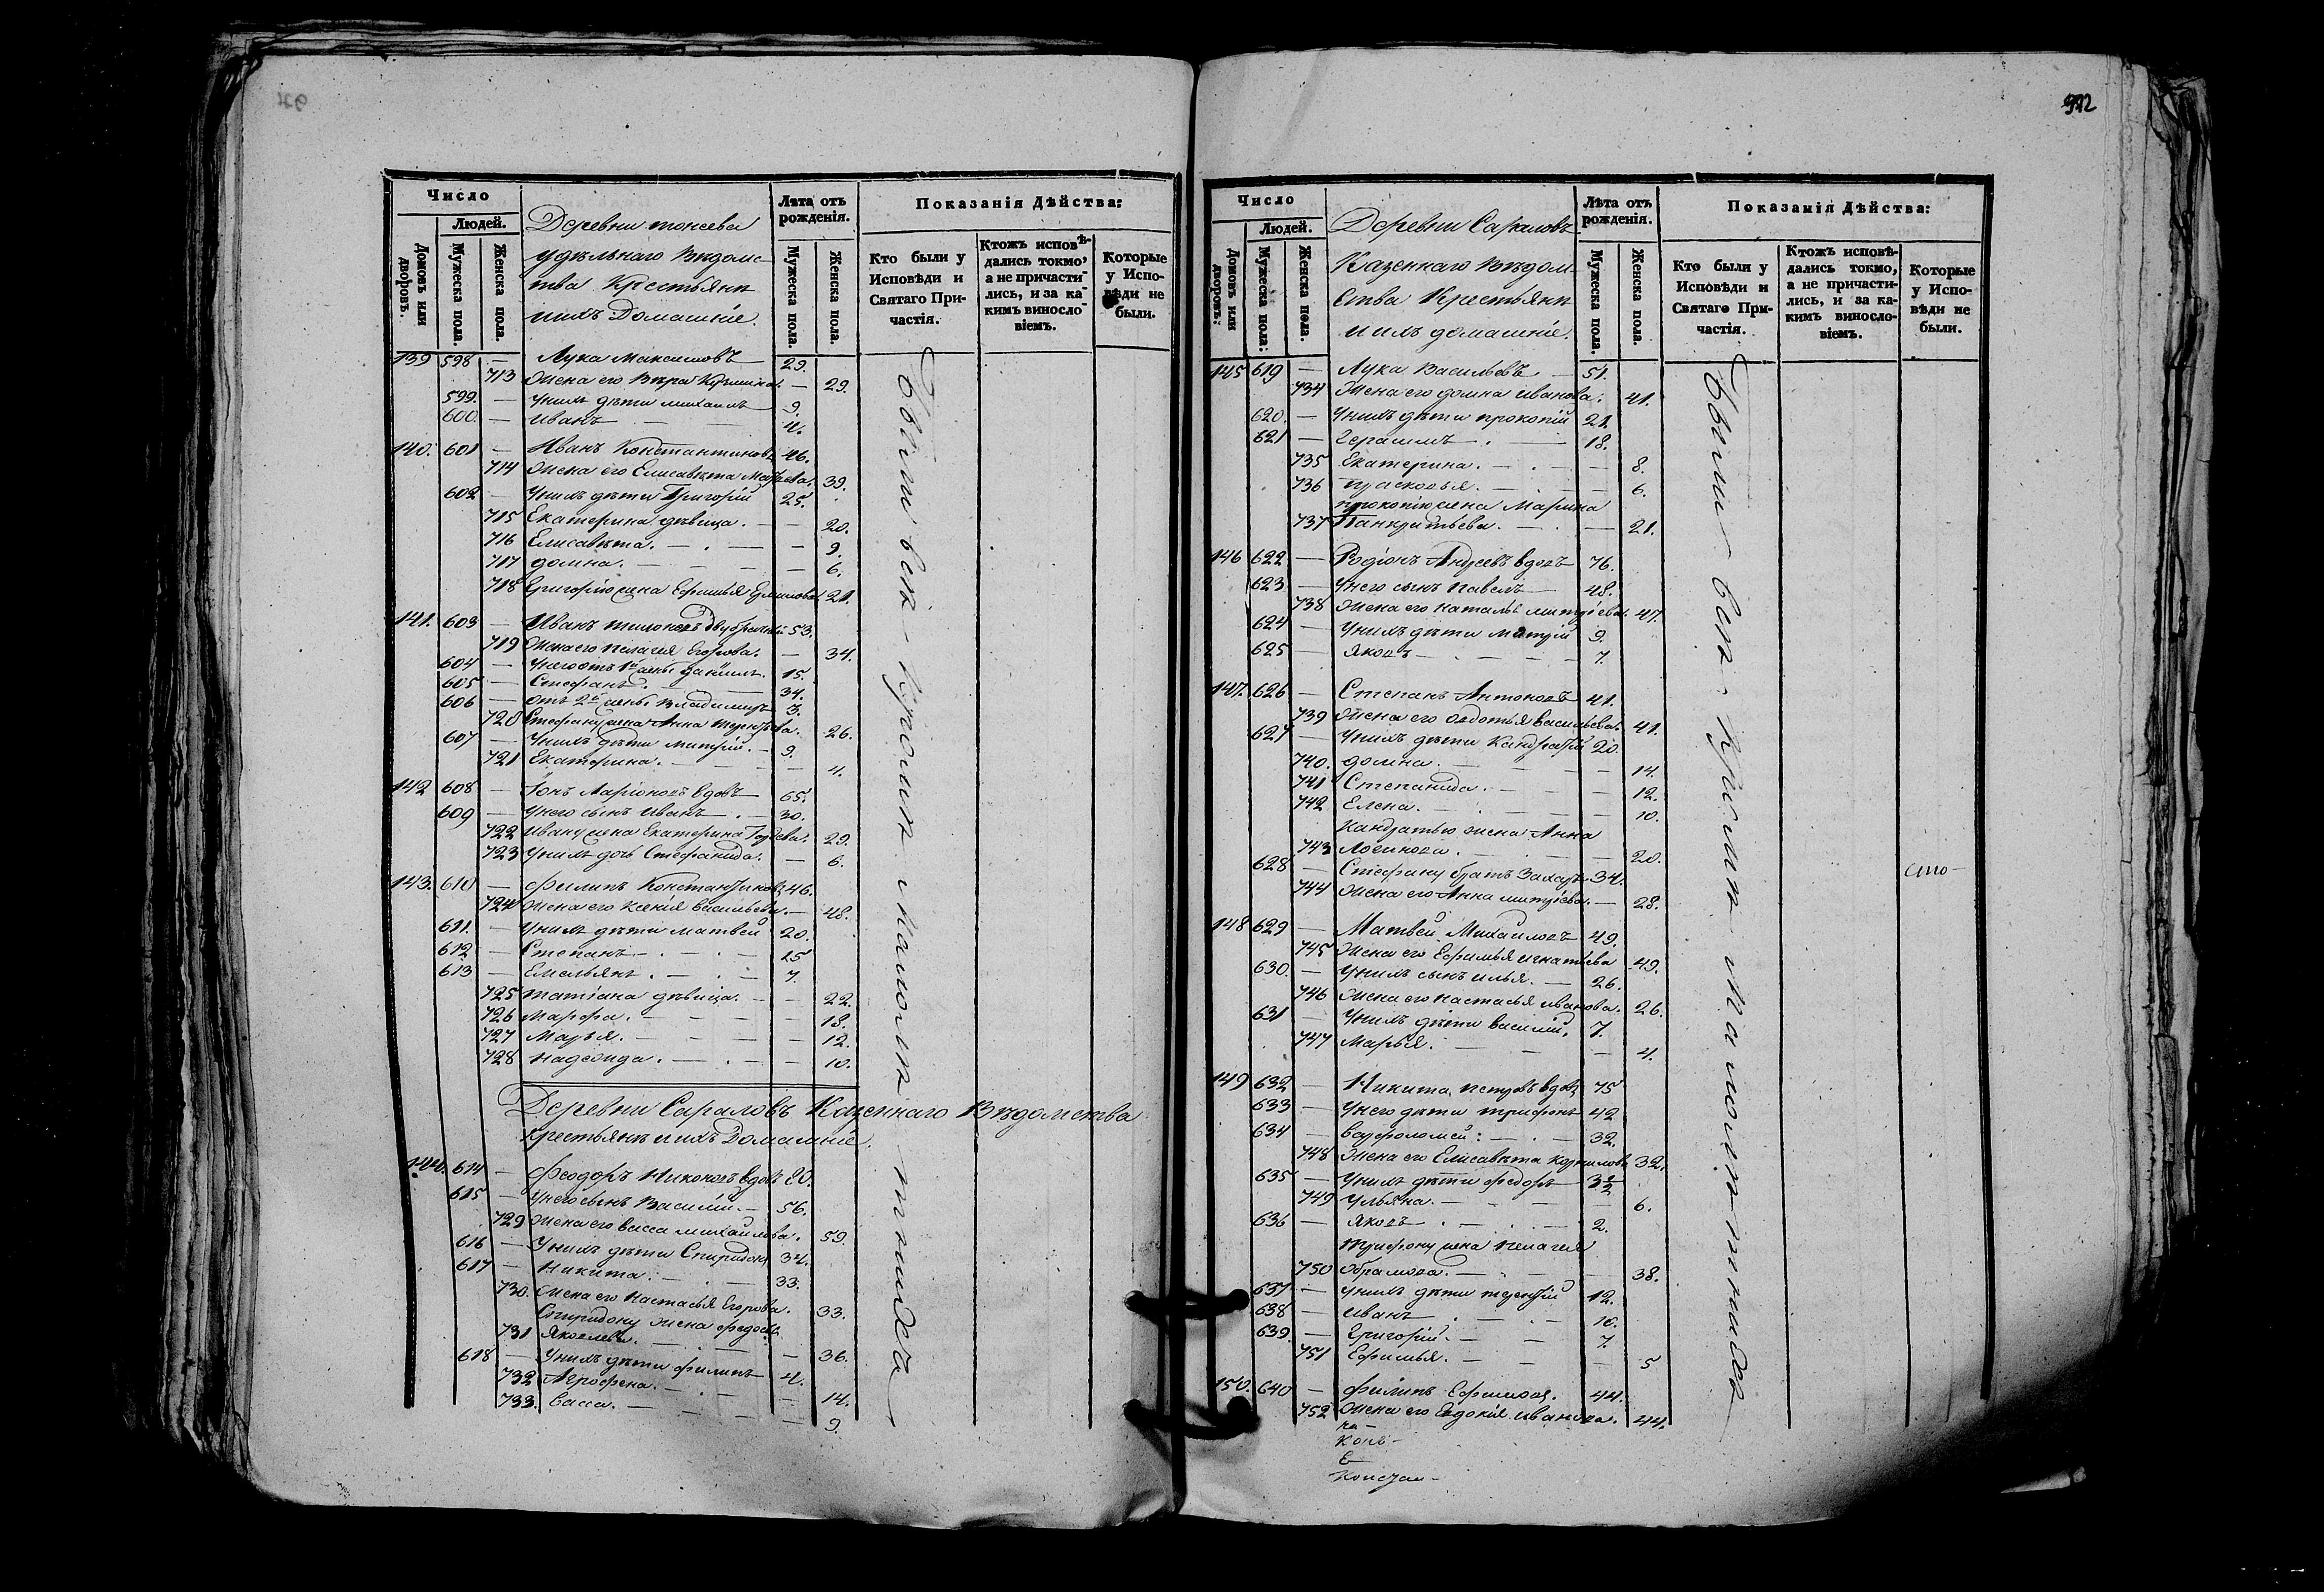 922
Число
Людей.
Домовъ или дворовъ.
Мужеска пола.
Женска пола.
Деревни
удѣльнаго Вѣдомс-
тва Крестьяне
и ихъ Домашніе.
Лѣта отъ рожденія.
Мужеска пола.
Женска пола.
Показанія Дѣйства:
Кто были у Исповѣди и Святаго Причастія.
Ктожъ исповѣдались токмо, а не причастились, и за какимъ винословіемъ.
Которые у Исповѣди не были.
139 598 — Лука Максимовъ 29.
713 Жена его Вѣра — 29.
599. — У нихъ дѣти Михаилъ 9.
600. — Иванъ — 4.
140. 601 — Иванъ Константиновъ 46.
714 Жена его Елисавѣта 39.
602 — У нихъ дѣти Григорій 25.
715 Екатерина дѣвица. — 20.
716 Елисавѣта. — 9.
717 Домна. — 6.
718 Григорію жена Ефимья 21.
141. 603 — Иванъ 53.
719 Жена его Пелагея Егорова. — 34.
604 — У него отъ 1й жены Даніилъ. 15.
605 — Стефанъ — 34.
606 — отъ 2й жены Владимиръ 3.
720 Стефану жена Анна 26.
607 — У нихъ дѣти Митрій. — 9.
721 Екатерина. — 4.
142 608 — Іонъ Ларіоновъ вдовъ 65.
609 — У него сынъ Иванъ — 30.
722 Ивану жена Екатерина 29.
723 У нихъ дочь Стефанида. — 6.
143. 610 — Филипъ Константиновъ 46.
724 Жена его Ксенія Васильева — 48.
611. — У нихъ дѣти Матвей 20.
612 — Степанъ — 15
613 — Емельянъ — 7.
725 Татіана дѣвица. — 22.
726 Марфа. — 18.
727 Марья. — 12.
728 — 10.
Деревни Сараловъ Казеннаго Вѣдомства
крестьяне и ихъ Домашніе.
144. 614 — Феодоръ Никоновъ вдовъ 80.
615 — У него сынъ Василій. — 56.
729 Жена его Васса Михайлова. 59.
616 — У нихъ дѣти Спиридонъ 34.
617 — Никита. — 33.
730. Жена его Настасья Егорова. 33.
Спиридону жена Федосья
731 Яковлева. — 36.
618 — У нихъ дѣти Филипъ 4.
732 Агрофена. — 14.
733. Васса. — 9.
Были всѣ кромѣ малолѣтнихъ
Число
Людей.
Домовъ или дворовъ:
Мужеска пола:
Женска пола.
Деревни Сараловъ
Казеннаго Вѣдом-
ства Крестьяне
и ихъ домашніе.
Лѣта отъ рожденія.
Мужеска пола.
Женска пола.
Показанія Дѣйства:
Кто были у Исповѣди и Святаго Причастія.
Ктожъ исповѣдались токмо, а не причастились, и за какимъ винословіемъ.
Которые у Исповѣди не были.
145 619 — Лука Васильевъ — 51.
734 Жена его Домна Иванова. 41.
620. — У нихъ дѣти Прокопій 21
621 — Герасимъ — 18.
735 Екатерина. — 8.
736 Прасковья. — 6.
Прокопію жена Марина
737 Панкратьева. — 21.
146 622 — Родіонъ Андреевъ вдовъ 76.
623 — У него сынъ Павелъ — 48.
738 Жена его Наталья Митріева. 47.
624 — У нихъ дѣти Митрій 9.
625 — Яковъ — 7.
147. 626 — Степанъ Антоновъ 41.
739 Жена его Авдотья Васильева. 41.
627 — У нихъ дѣти Кандратій 20.
740. Домна. — 14.
741 Степанида. — 12.
742 Елена. — 10.
Кандратью жена Анна
743 Логинова. — 20.
628 — Стефану братъ Захаръ 34.
744 Жена его Анна Митріева. — 28.
148 629 — Матвей Михайловъ 49.
745 Жена его Ефимья Игнатьева 49.
630. — У нихъ сынъ Илья. — 26.
746 Жена его Настасья Иванова. 26.
631 — У нихъ дѣти Василій. 7.
747 Марья. — 4.
149 632 — Никита Петровъ вдовъ 75
633 — У него дѣти Трифонъ 42
634 — Варфоломей: — 32.
748 Жена его Елисавѣта Корнилова 32.
635 — У нихъ дѣти Федоръ 3½
749 Ульяна. — 6.
636 — Яковъ — 2.
Трифону жена Пелагея
750 Абрамова. — 38.
637 — У нихъ дѣти Терентій 12.
638 — Иванъ — 10.
639. — Григорій — 7.
751 Ефимья. — 5
150. 640 — Филипъ Ефимовъ. 44.
752 Жена его Евдокія Иванова. 44.
Были всѣ кромѣ малолѣтнихъ